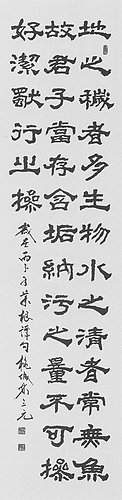 地之穢者多生物水之清者常無魚
故君子當存含垢納污之量不可操
好潔行之操
歲在丙月菜根譚句